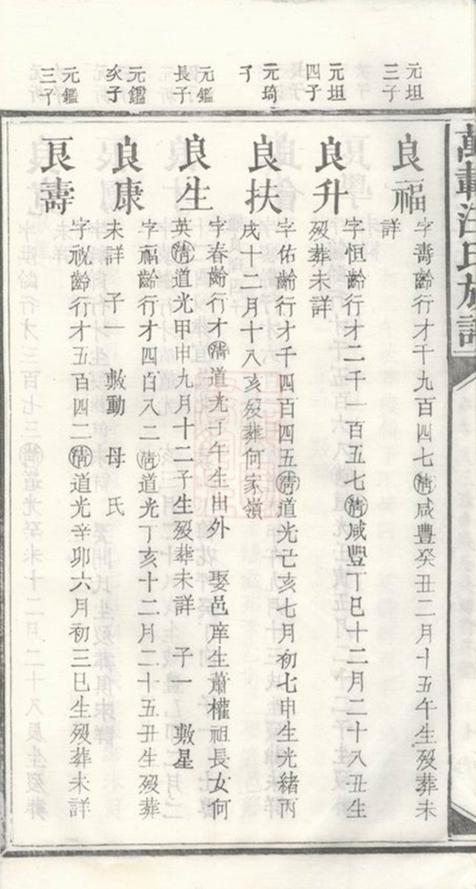 萬載汪氏族譜
元坦三子
良福 字壽齡行才千九百四七清咸豐癸丑二月十五午生歿葬未
詳
元坦四子
良升 字恒齡行才二千一百五七清咸豐丁巳十二月二十八丑生
歿葬未詳
元琦子
良扶 字佑齡行才千四百四五清道光己亥七月初七申生光緒丙
戌十二月十八亥歿葬何家嶺
元鑑長子
良生 字春齡行才清道光壬午生出外 娶邑庠生蕭權祖長女何
英清道光甲申九月十二子生歿葬未詳 子一 敷星
元鑑次子
良康 字福齡行才四百八二清道光丁亥十二月二十五丑生歿葬
未詳 子一 敷動 母氏
元鑑三子
良壽 字祝齡行才五百四二清道光辛卯六月初三巳生歿葬未詳